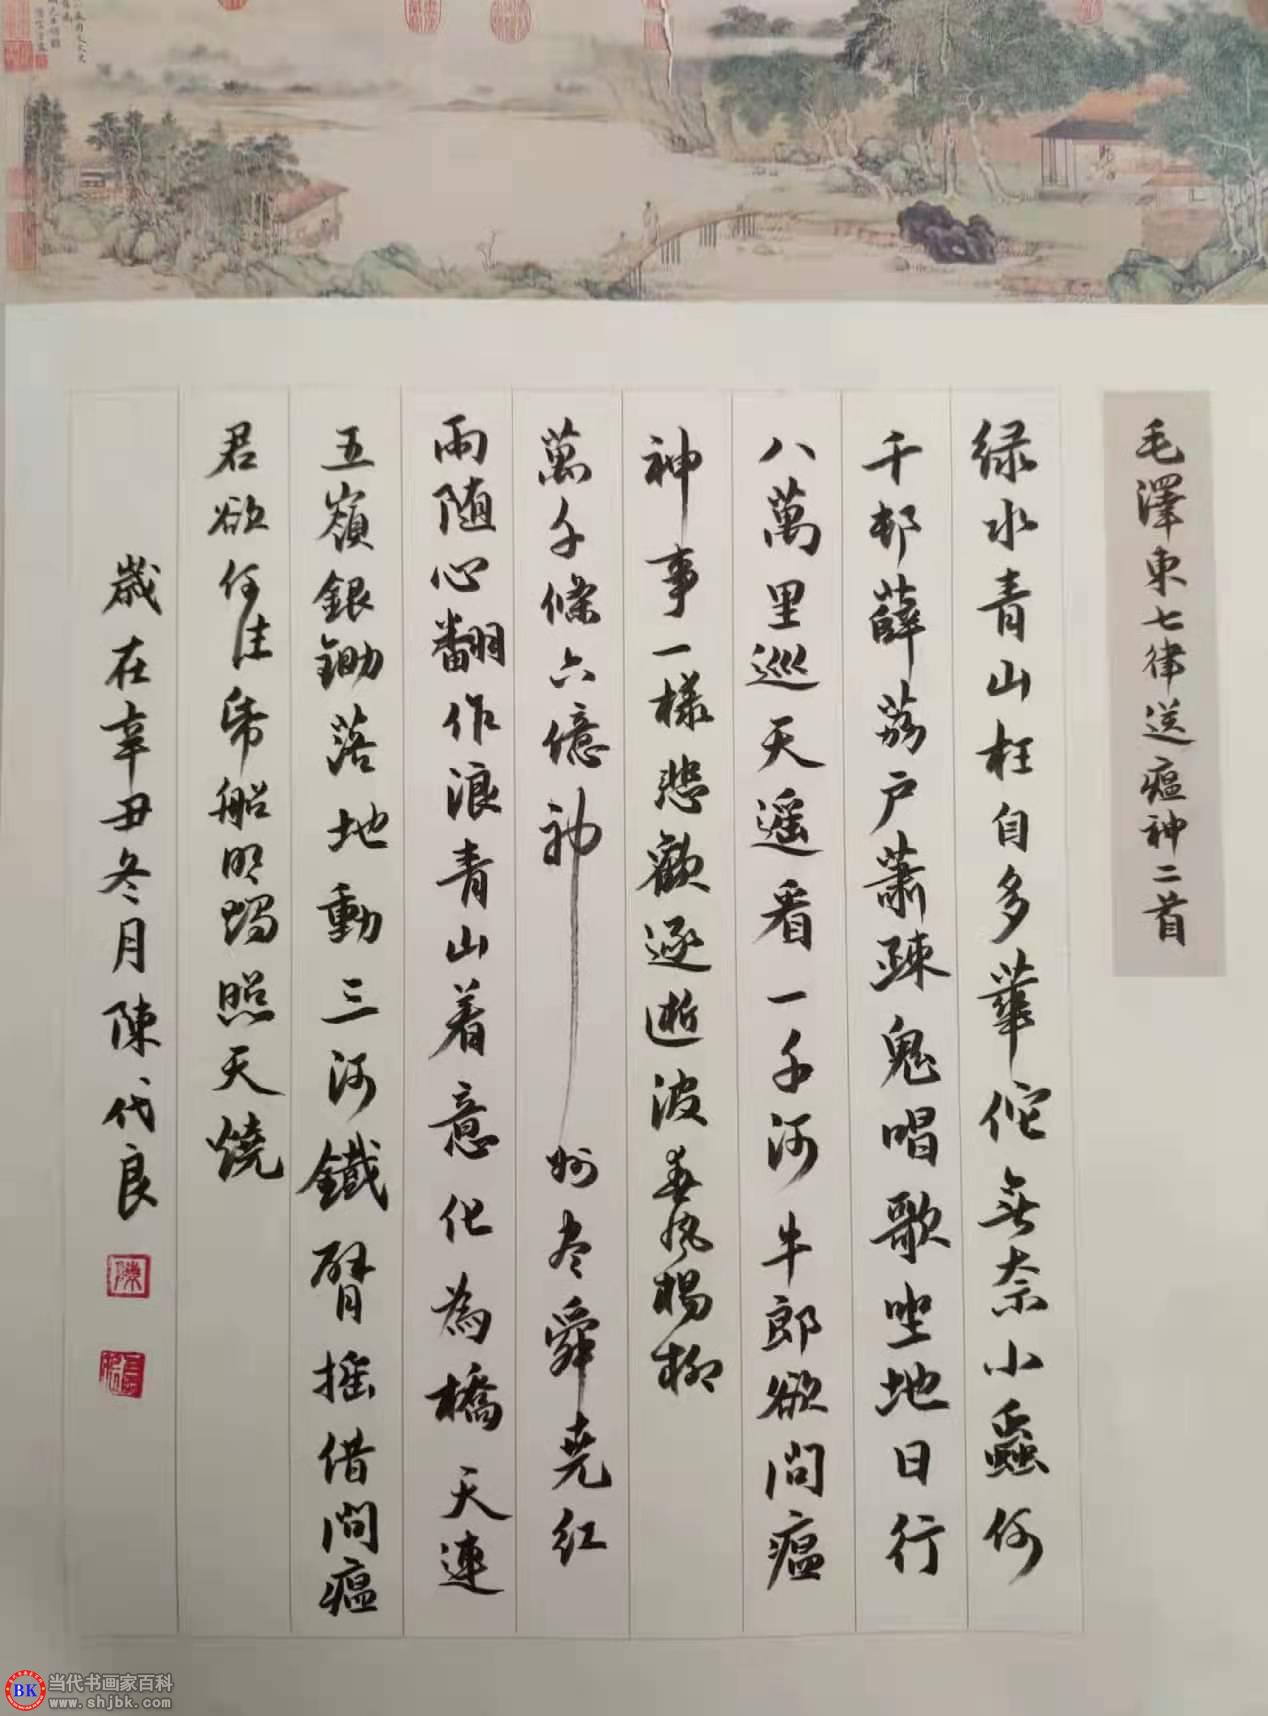 毛澤東七律送瘟神二首
绿水青山枉自多華佗無奈小蟲何
千邨薜荔户蕭疎鬼唱歌坐地日行
八萬里巡天遥看一千河牛郎欲問瘟
神事一樣悲歡逐逝波春风楊柳
萬千條六億神州尽舜尭红
雨随心翻作浪青山着意化為橋天連
五嶺銀鋤落地動三河鐵臂摇借問瘟
君欲何往帋船明燭照天燒
歲在辛丑冬月陳代良
陳
BK 当代书画家百科
www.shjbk.com